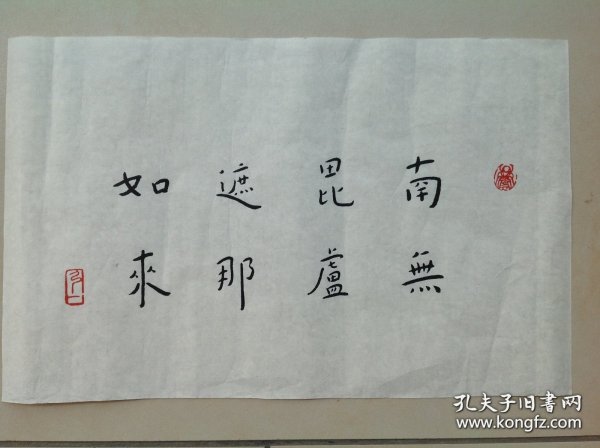 南無
毘盧
遮那
如來
孔夫子旧书网
www.kongfz.com